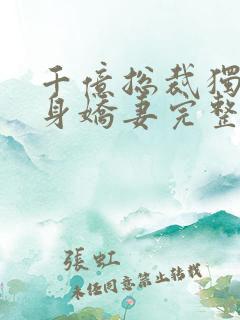 千億總裁獨
身嬌妻完整
張虹
未经同意禁止转载